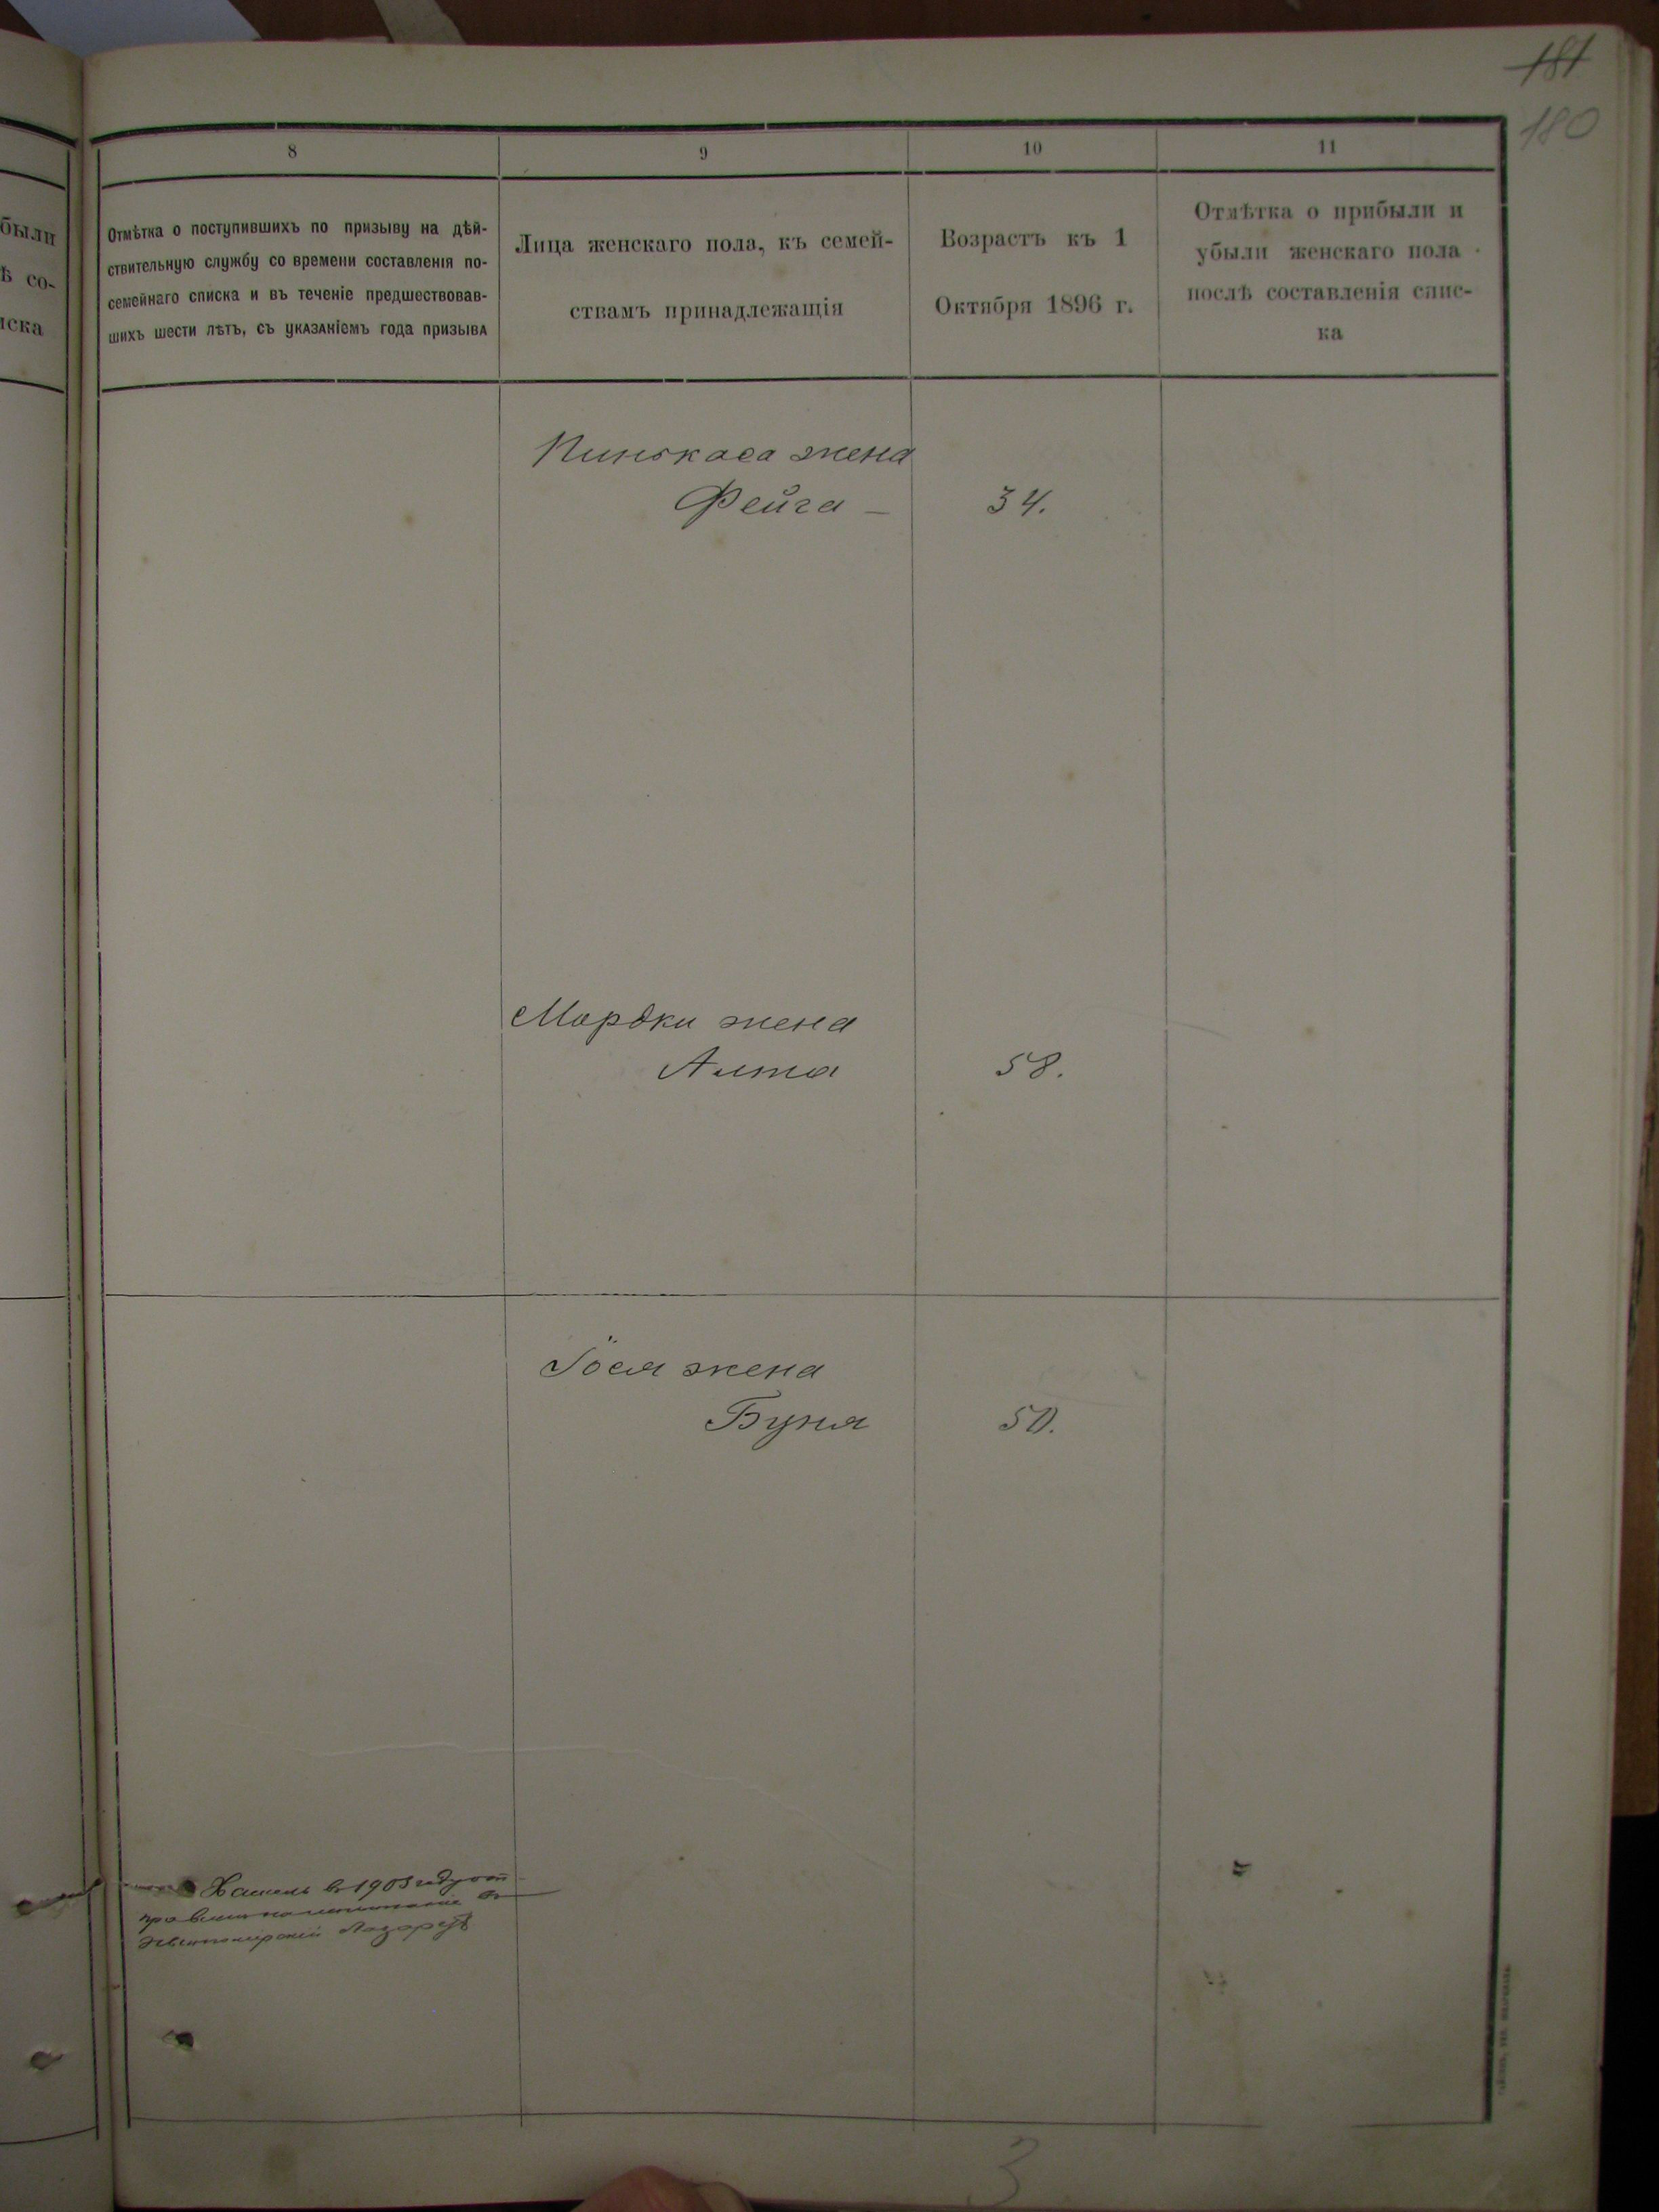 181
180
были
ѣ со-
иска
8
Отмѣтка о поступившихъ по призыву на дѣй-
ствительную службу со времени составленія по-
семейнаго списка и въ теченіе предшествовав-
шихъ шести лѣтъ, съ указаніемъ года призыва
9
Лица женскаго пола, къ семей-
ствамъ принадлежащія
10
Возрастъ къ 1
Октября 1896 г.
11
Отмѣтка о прибыли и
убыли женскаго пола
послѣ составленія спис-
ка
Пинькаса жена
Фейга — 34.
Мордки жена
Алта 58.
Іося жена
Буня 50.
в 1903 году от
в
Житомирский Лазарет
3